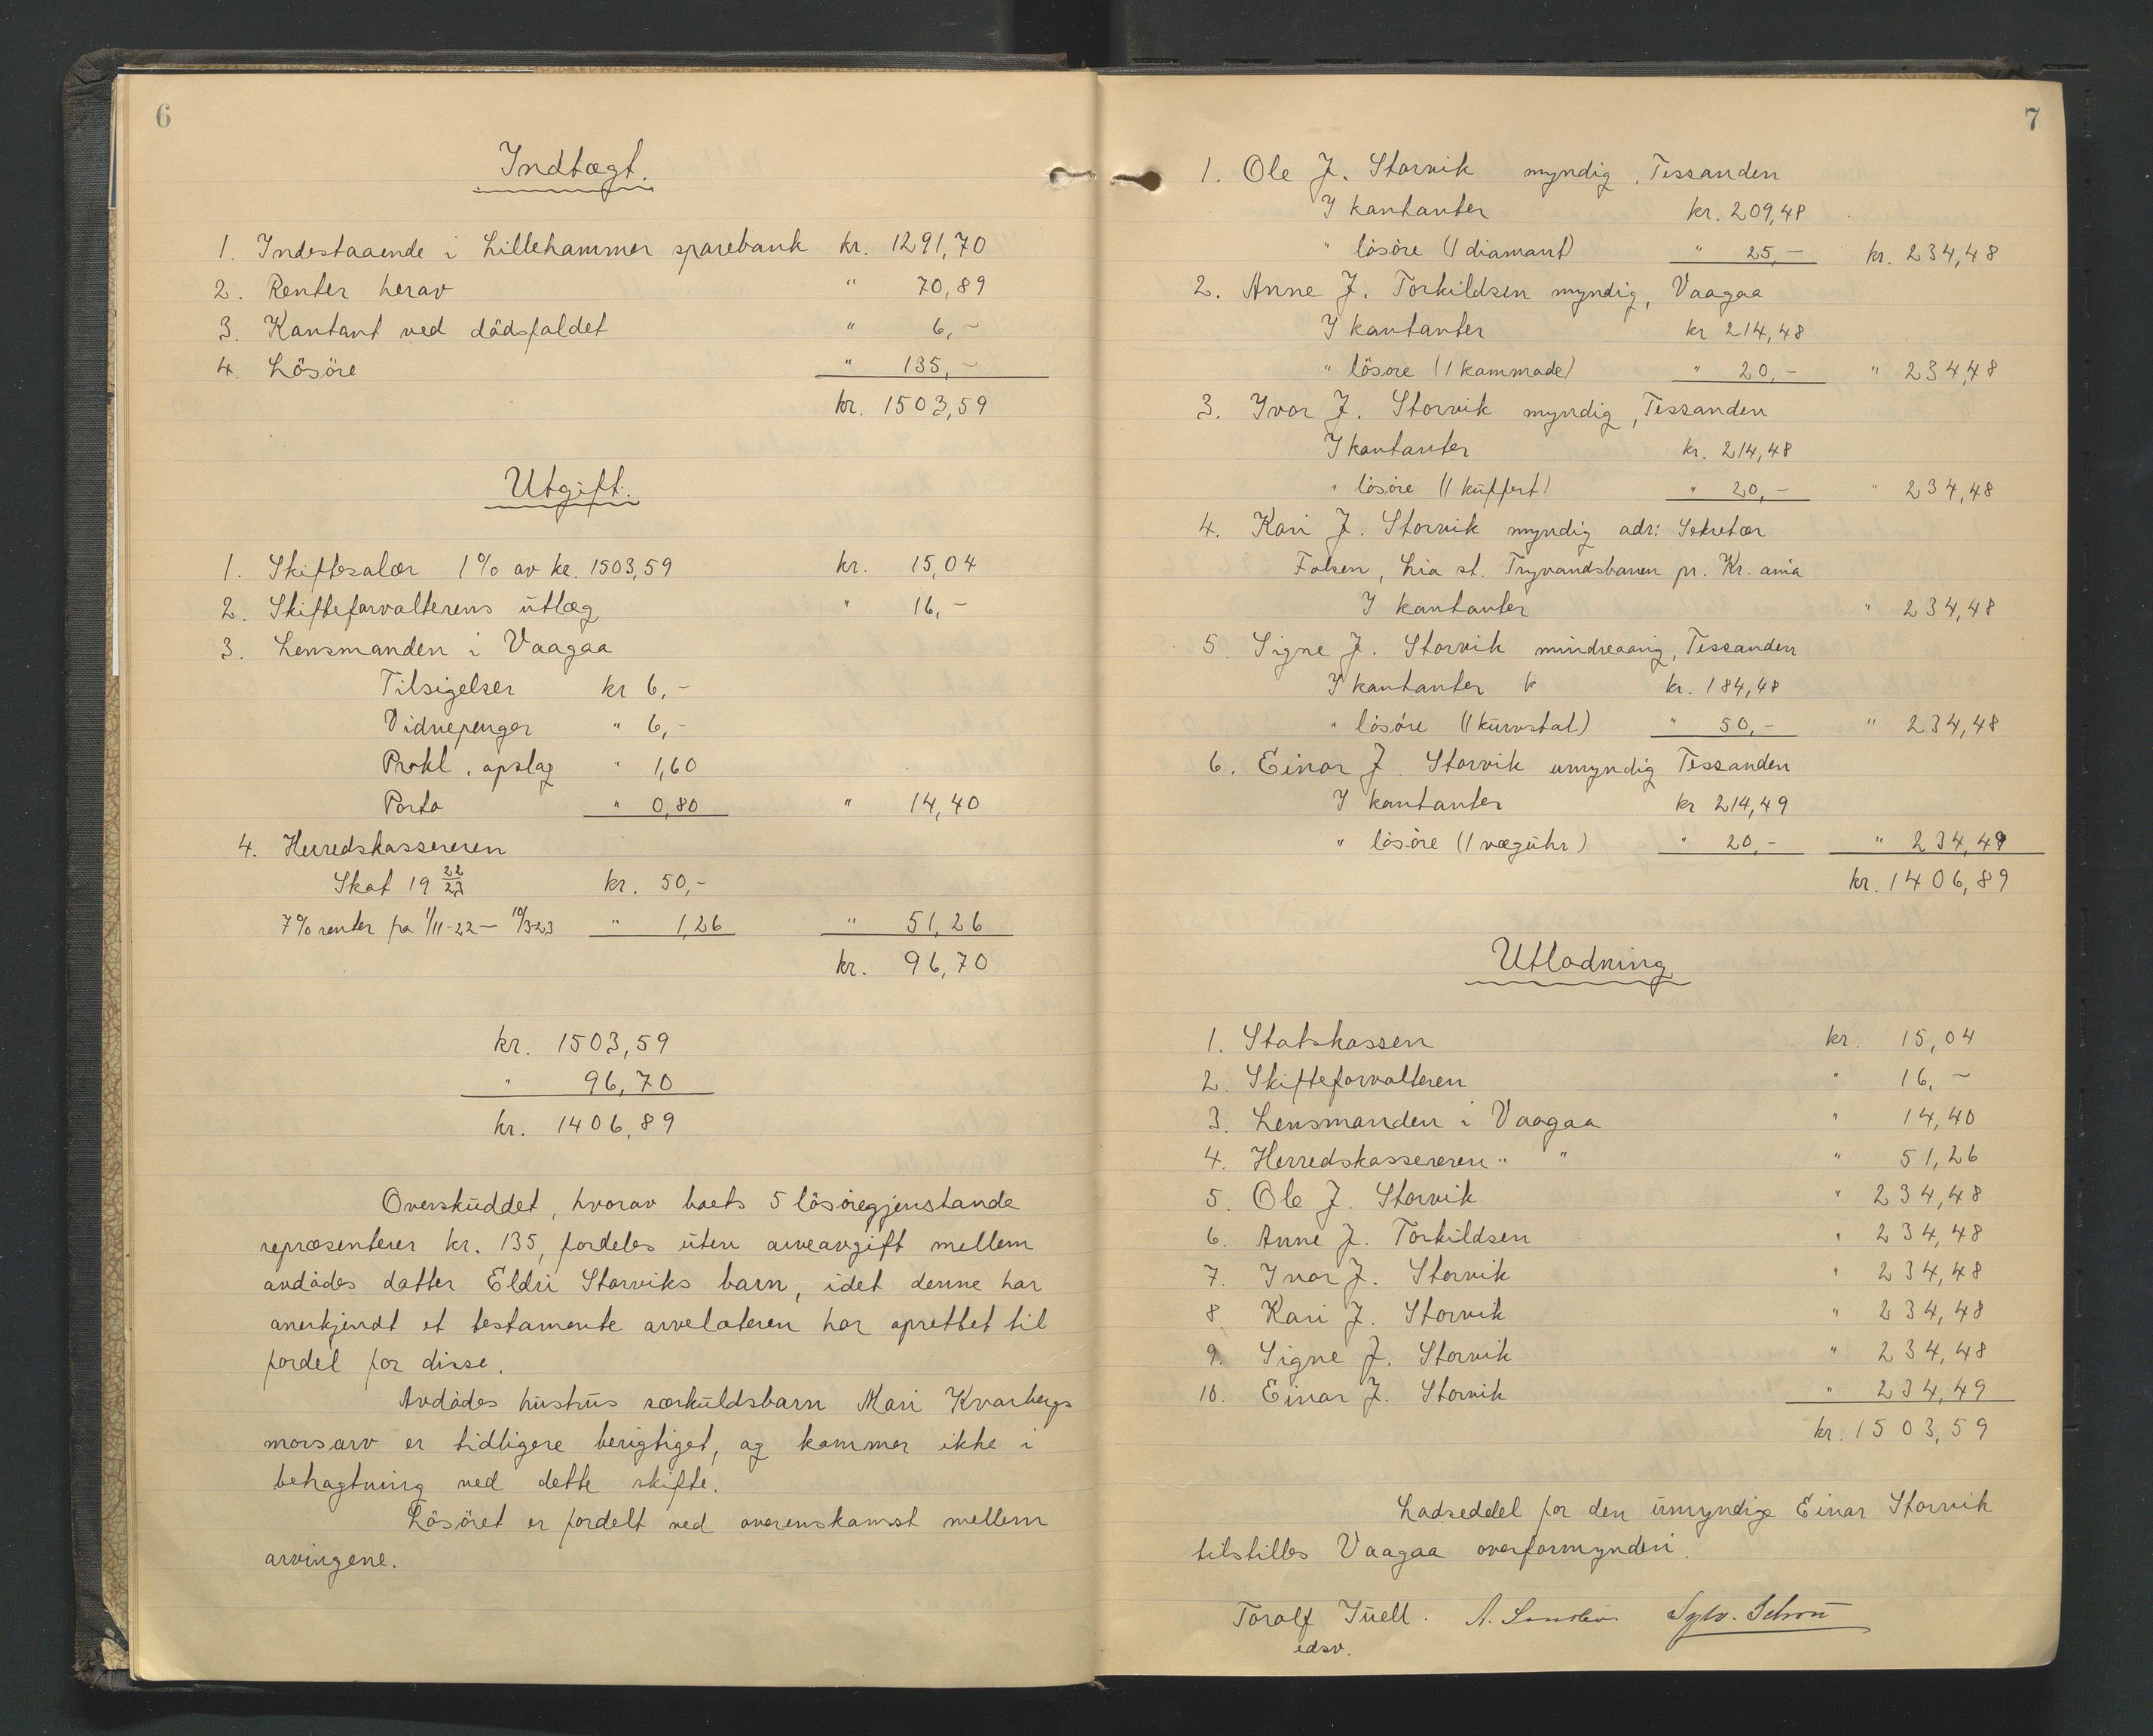 6
Indtægt.
1. Indestaaende i Lillehammer sparebank kr. 1291,70
2. Renter herav " 70,89
3. Kontant ved dödsfaldet " 6,-
4. Lösöre " 135,-
kr. 1503,59
Utgift.
1. Skiftesalær 1% av kr. 1503,59 kr. 15,04
2. Skifteforvalterens utlæg " 16,-
3. Lensmanden i Vaagaa
Tilsigelser kr 6,-
Vidnepenger " 6,-
Prokl. opslag " 1,60
Porto " 0,80 " 14,40
4. Herredskassereren
Skat 19 22/23 kr. 50,-
7% renter fra 1/11-22 - 10/3-23 " 1,26 " 51,26
kr. 96,70
kr. 1503,59
" 96,70
kr. 1406,89
Overskuddet, hvorav boets 5 lösöregjenstande
repræsenterer kr. 135, fordeles uten arveavgift mellem
avdödes datter Eldri Storviks barn, idet denne har
anerkjendt et testamente arvelateren har oprettet til
fordel for disse.
Avdödes hustrus særkuldsbarn Mari Kvarbergs
morsarv er tidligere berigtiget, og kommer ikke i
betragtning ved dette skifte.
Lösöret er fordelt ved overenskomst mellem
arvingene.
7
1. Ole J. Storvik myndig, Tessanden
I kontanter kr. 209,48
" lösöre (1 diamant) " 25,- kr. 234,48
2. Anne J. Torkildsen myndig, Vaagaa
I kontanter kr 214,48
" lösore (1 kommode) " 20,- " 234,48
3. Ivar J. Storvik myndig, Tessanden
I kontanter kr. 214,48
" lösöre (1 kuffert) " 20,- " 234,48
4. Kari J. Storvik myndig adr: Sekretær
Falsen, Lia st. Tryvandsbanen pr. Kr. ania
I kontanter " 234,48
5 Signe J. Storvik mindreaarig, Tessanden
I kontanter k kr. 184,48
" lösöre (1 kurvstol) " 50,- " 234,48
6. Einar J. Storvik umyndig Tessanden
I kontanter kr 214,49
" lösöre (1 væguhr) " 20,- " 234,49
kr. 1406,89
Utlodning
1. Statskassen kr. 15,04
2. Skifteforvalteren " 16,-
3. Lensmanden i Vaagaa " 14,40
4. Herredskassereren " " " 51,26
5. Ole J. Storvik " 234,48
6. Anne J. Torkildsen " 234,48
7. Ivar J. Storvik " 234,48
8. Kari J. Storvik " 234,48
9. Signe J. Storvik " 234,48
10. Einar J. Storvik " 234,49
kr. 1503,59
Lodseddel for den umyndige Einar Storvik
tilstilles Vaagaa overformynderi.
Toralf Juell. A. Sylv. Schrou
edsv.